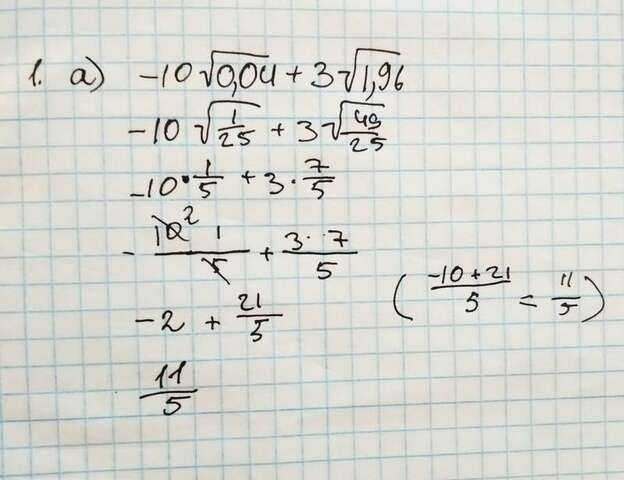 1. a) -10√0,04 + 3√1,96
-10 √(1/25) + 3√(49/25)
-10 · 1/5 + 3 · 7/5
- (10² 1)/5 + (3 · 7)/5
-2 + 21/5 ( (-10 + 21)/5 = 11/5 )
11/5